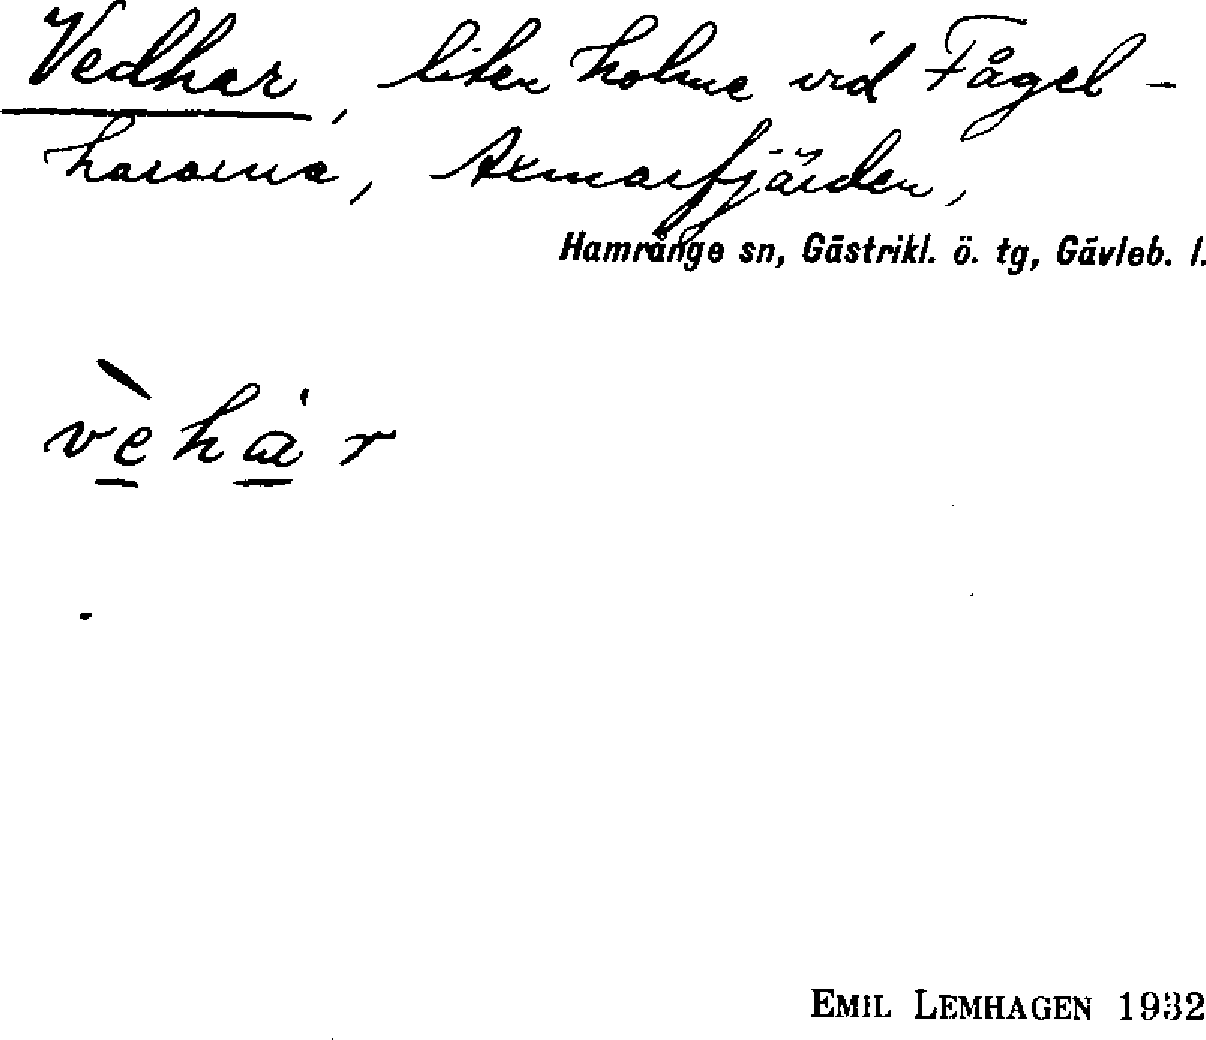 Vedhar, liten holme vid Fågel-
hararna, Axmarfjärden,
Hamrånge sn, Gästrikl. ö. tg, Gävleb. l.
vèhàr
EMIL LEMHAGEN 1932